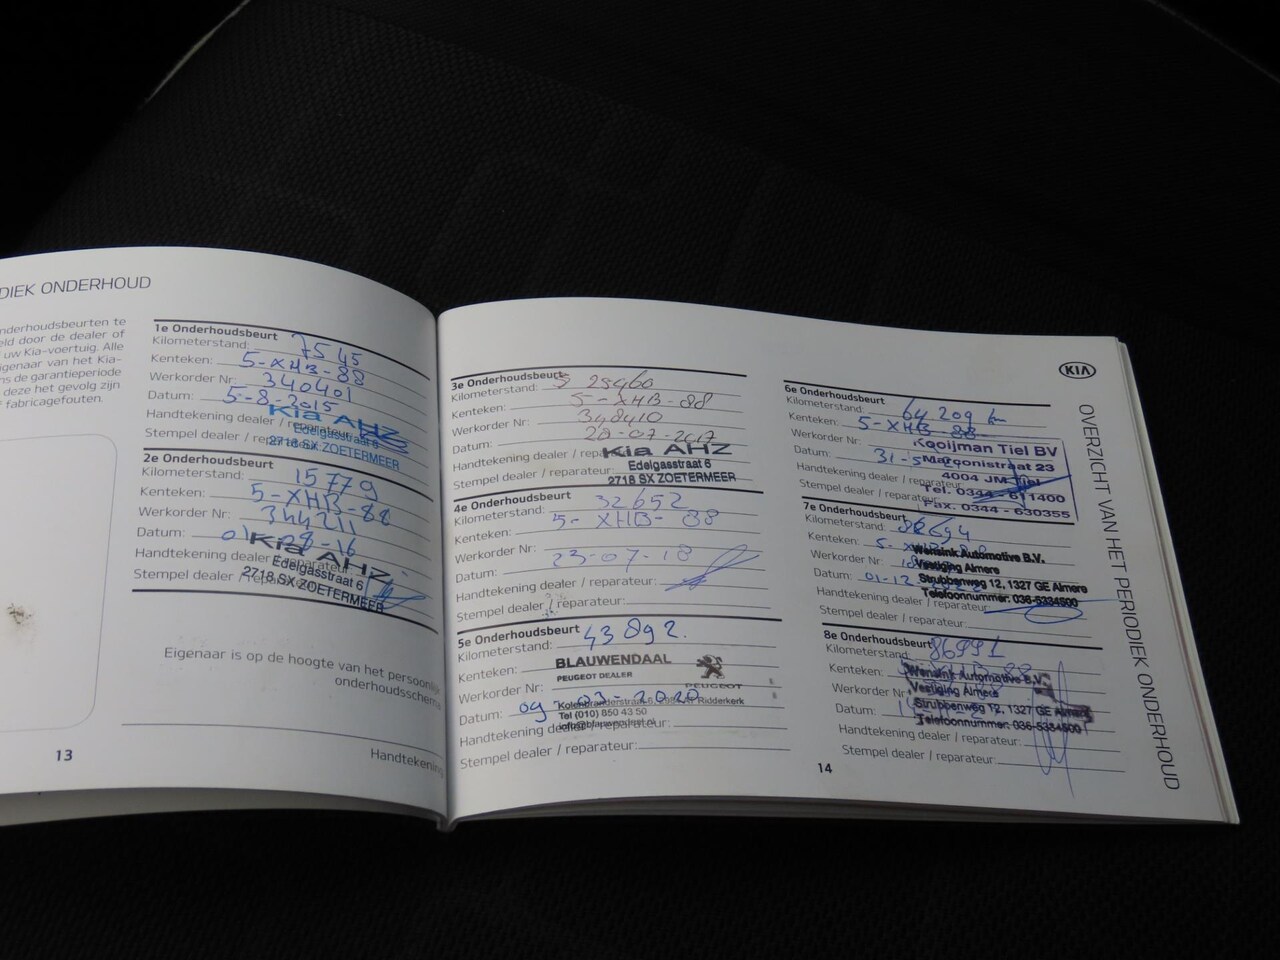 DIEK ONDERHOUD
nderhoudsbeurten te
eld door de dealer of
uw Kia-voertuig. Alle
igenaar van het Kia-
ns de garantieperiode
deze het gevolg zijn
f fabricagefouten.
1e Onderhoudsbeurt
Kilometerstand: 7545
Kenteken: 5-XHB-88
Werkorder Nr: 340401
Datum: 5-8-2015
Handtekening dealer / reparateur:
Stempel dealer / reparateur:
Kia AHZ
Edelgasstraat 6
2718 SX ZOETERMEER
2e Onderhoudsbeurt
Kilometerstand: 15779
Kenteken: 5-XHB-88
Werkorder Nr: 344211
Datum: 01-08-16
Handtekening dealer / reparateur:
Stempel dealer / reparateur:
Kia AHZ
Edelgasstraat 6
2718 SX ZOETERMEER
Eigenaar is op de hoogte van het persoonlij
onderhoudsschema
13
Handtekening
3e Onderhoudsbeurt
Kilometerstand: 23960
Kenteken: 5-XHB-88
Werkorder Nr: 348410
Datum: 28-07-2017
Handtekening dealer / reparateur:
Stempel dealer / reparateur:
Kia AHZ
Edelgasstraat 6
2718 SX ZOETERMEER
4e Onderhoudsbeurt
Kilometerstand: 32652
Kenteken: 5-XHB-88
Werkorder Nr:
Datum: 23-07-18
Handtekening dealer / reparateur:
Stempel dealer / reparateur:
5e Onderhoudsbeurt
Kilometerstand: 43892.
Kenteken:
Werkorder Nr:
Datum: 09-03-2020
Handtekening dealer / reparateur:
Stempel dealer / reparateur:
BLAUWENDAAL
PEUGEOT DEALER
PEUGEOT
Ridderkerk
Tel (010) 850 43 50
KIA
6e Onderhoudsbeurt
Kilometerstand: 64209 km
Kenteken: 5-XHB-88
Werkorder Nr:
Datum: 31-5
Handtekening dealer / reparateur:
Stempel dealer / reparateur:
Kooijman Tiel BV
Marconistraat 23
4004 JM Tiel
Tel. 0344 - 611400
Fax. 0344 - 630355
7e Onderhoudsbeurt
Kilometerstand
Kenteken:
Werkorder Nr:
Datum: 01-12
Handtekening dealer / reparateur:
Stempel dealer / reparateur:
Wensink Automotive B.V.
Vestiging Almere
Strubbenweg 12, 1327 GE Almere
Telefoonnummer: 036-5334500
8e Onderhoudsbeurt
Kilometerstand: 86991
Kenteken:
Werkorder Nr:
Datum:
Handtekening dealer / reparateur:
Stempel dealer / reparateur:
Wensink Automotive B.V.
Vestiging Almere
Strubbenweg 12, 1327 GE Almere
Telefoonnummer: 036-5334500
14
OVERZICHT VAN HET PERIODIEK ONDERHOUD